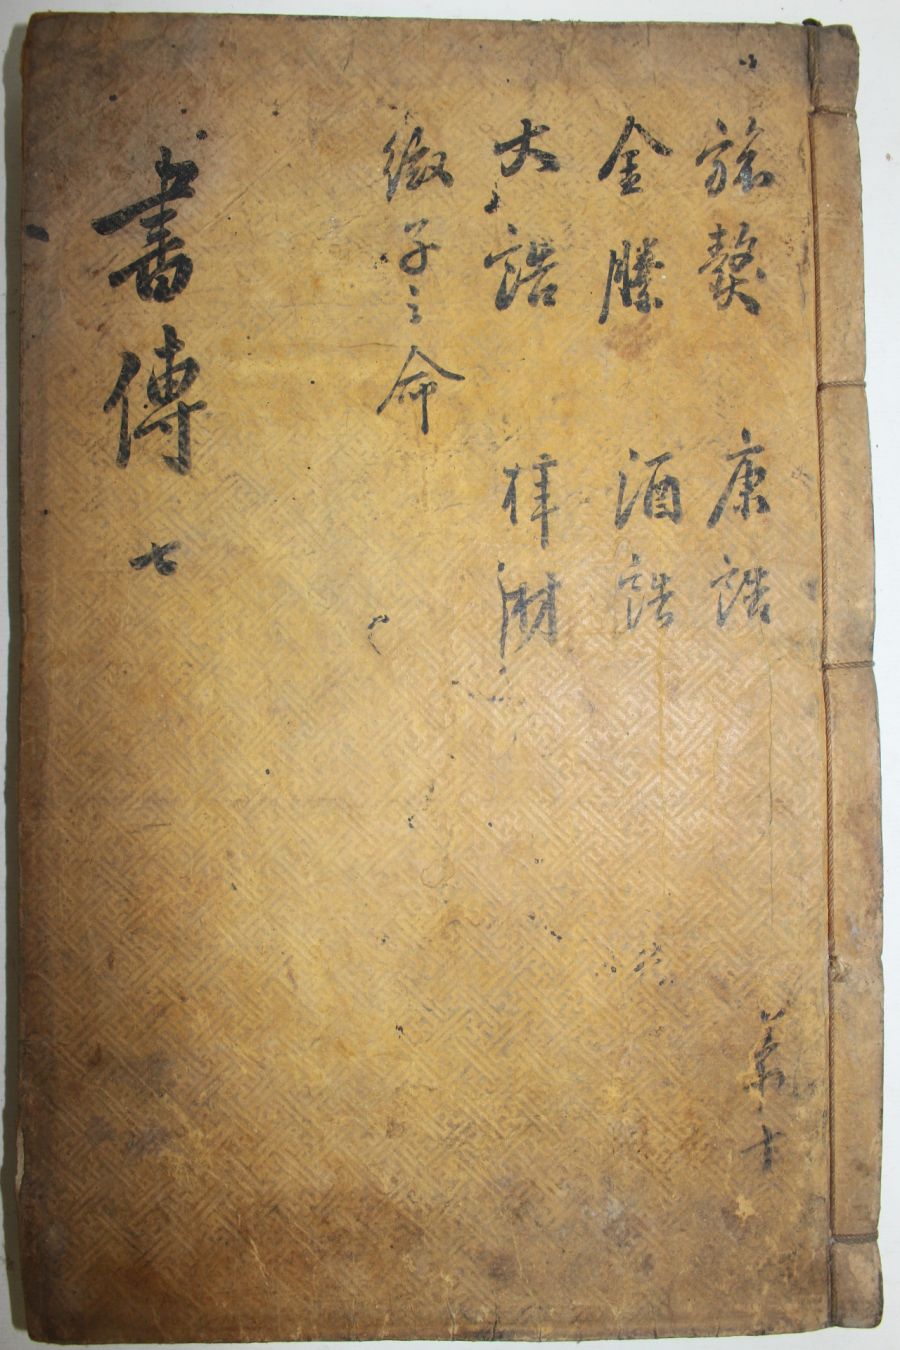 旅獒 康誥
金縢 酒誥
大誥 梓材
微子之命
書傳 七
十